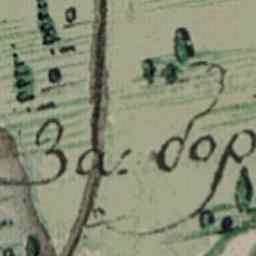 За: бор